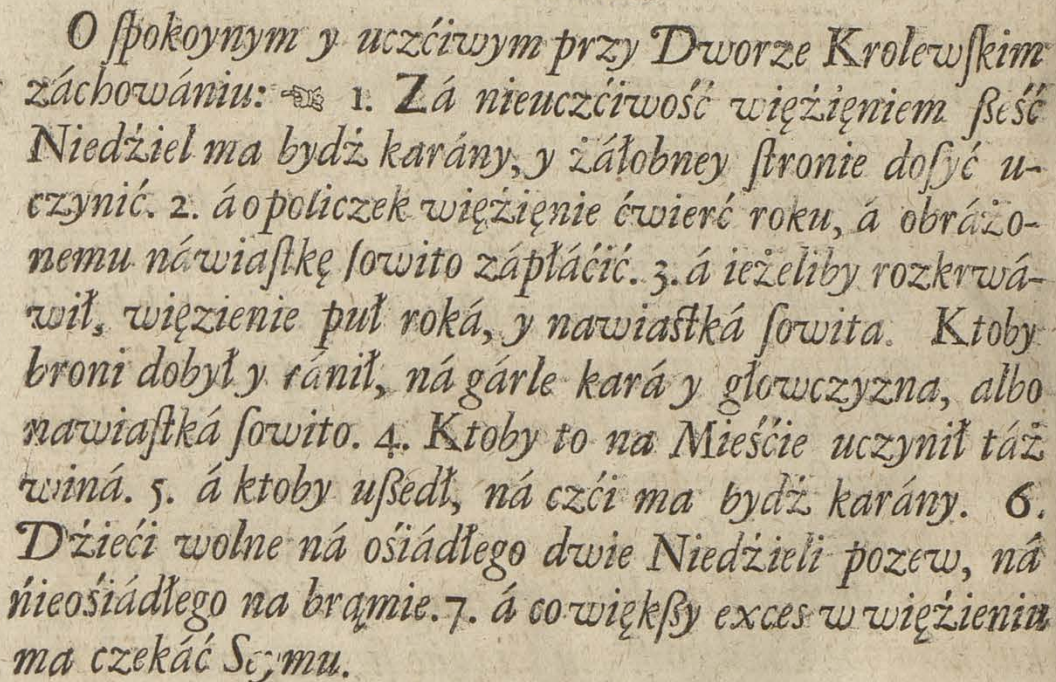 O ſpokoynym y uczćiwym przy Dworze Krolewſkim
záchowániu: ☜ 1. Zá nieuczćiwość więźięniem ſześć
Niedźiel ma bydź karány, y żáłobney ſtronie doſyć u-
czynić. 2. á o policzek więźięnie ćwierć roku, á obráżo-
nemu náwiaſtkę ſowito zápłáćić. 3. á ieżeliby rozkrwá-
wił, więzienie puł roká, y nawiaſtká ſowita. Ktoby
broni dobył y ránił, ná gárle kará y głowczyzna, albo
nawiaſtká ſowito. 4. Ktoby to na Mieśćie uczynił táż
winá. 5. á ktoby uſzedł, ná czći ma bydź karány. 6.
Dźieći wolne ná ośiádłego dwie Niedźieli pozew, ná
ńieośiádłego na brąmie. 7. á co więkſzy exces w więźieniu
ma czekáć Seymu.